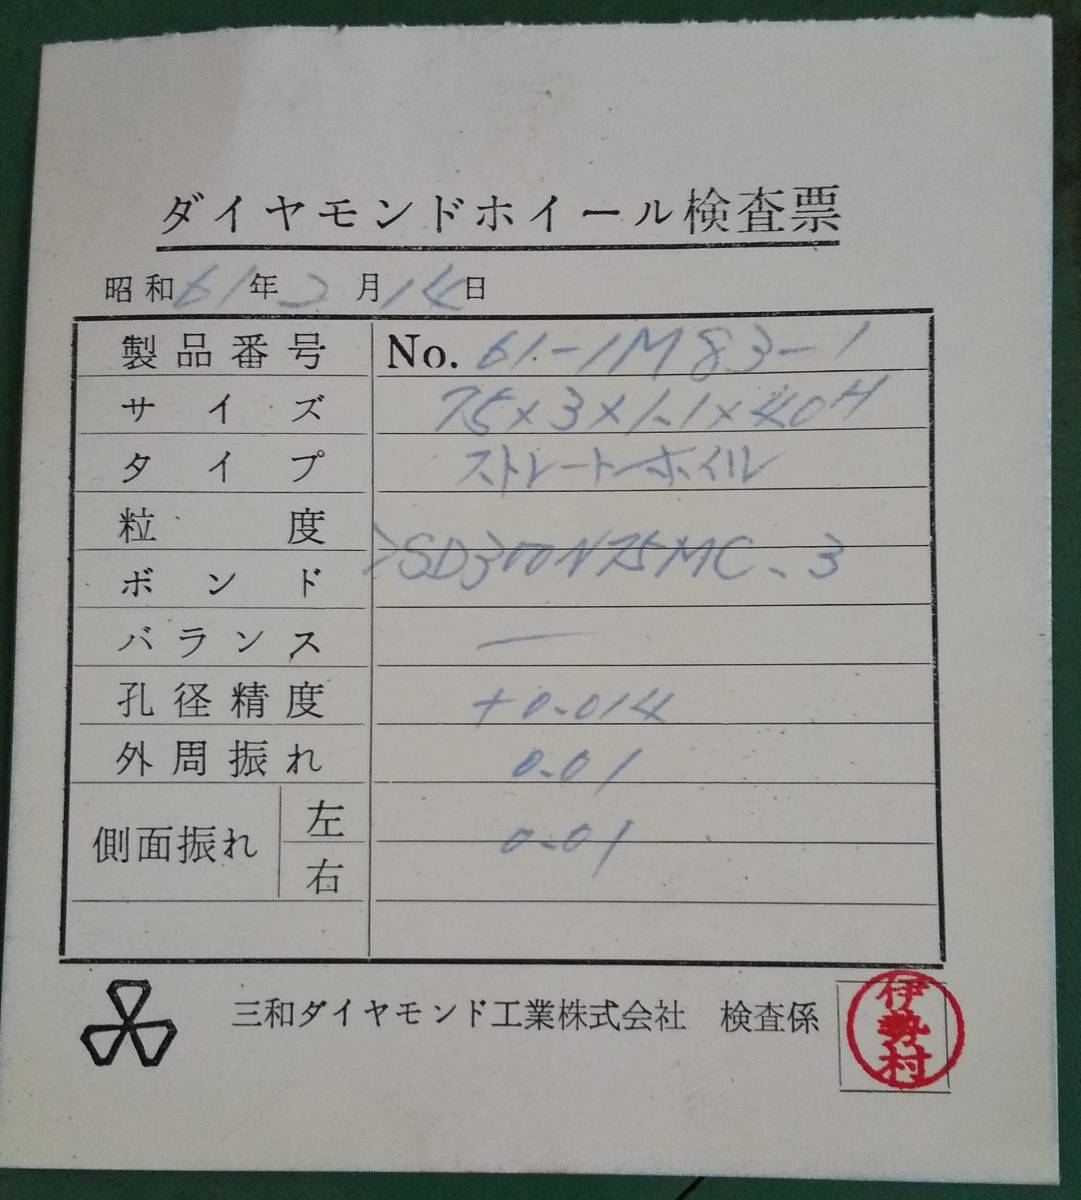 ダイヤモンドホイール検査票
昭和61年2月14日
製品番号 No. 61-1M83-1
サイズ 75×3×1.1×40H
タイプ ストレートホイル
粒度
ボンド >SD300N75MC.3
バランス ―
孔径精度 +0.014
外周振れ 0.01
側面振れ 左 右 0.01
三和ダイヤモンド工業株式会社 検査係 伊勢村